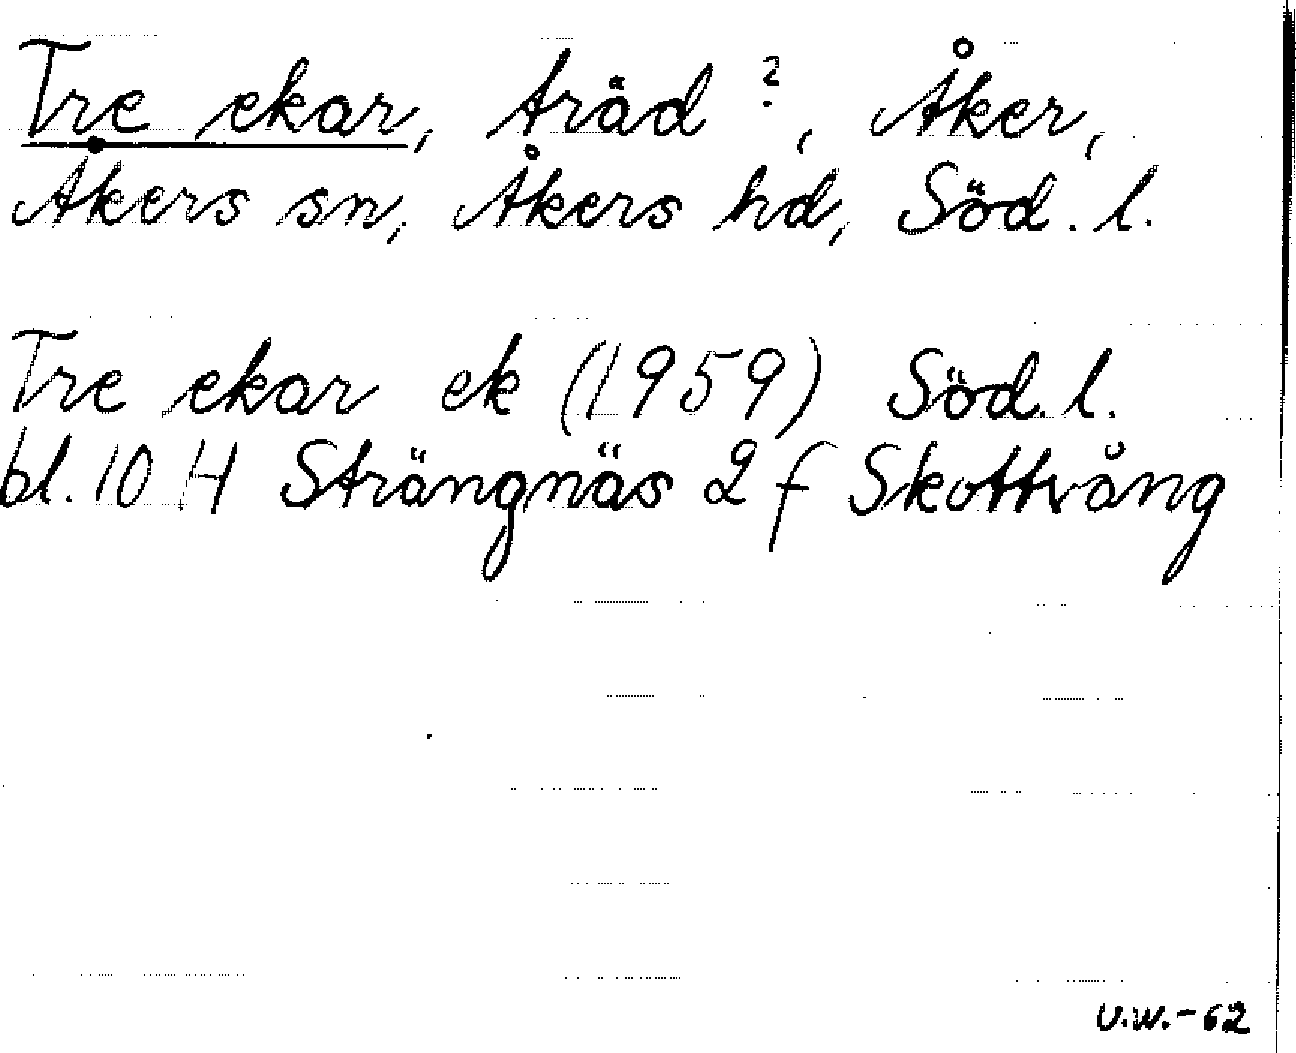 Tre ekar, träd ?, Åker,
Åkers sn, Åkers hd, Söd. l.
Tre ekar ek (1959) Söd. l.
bl. 10 H Strängnäs 2 f Skottvång
U.W.-62